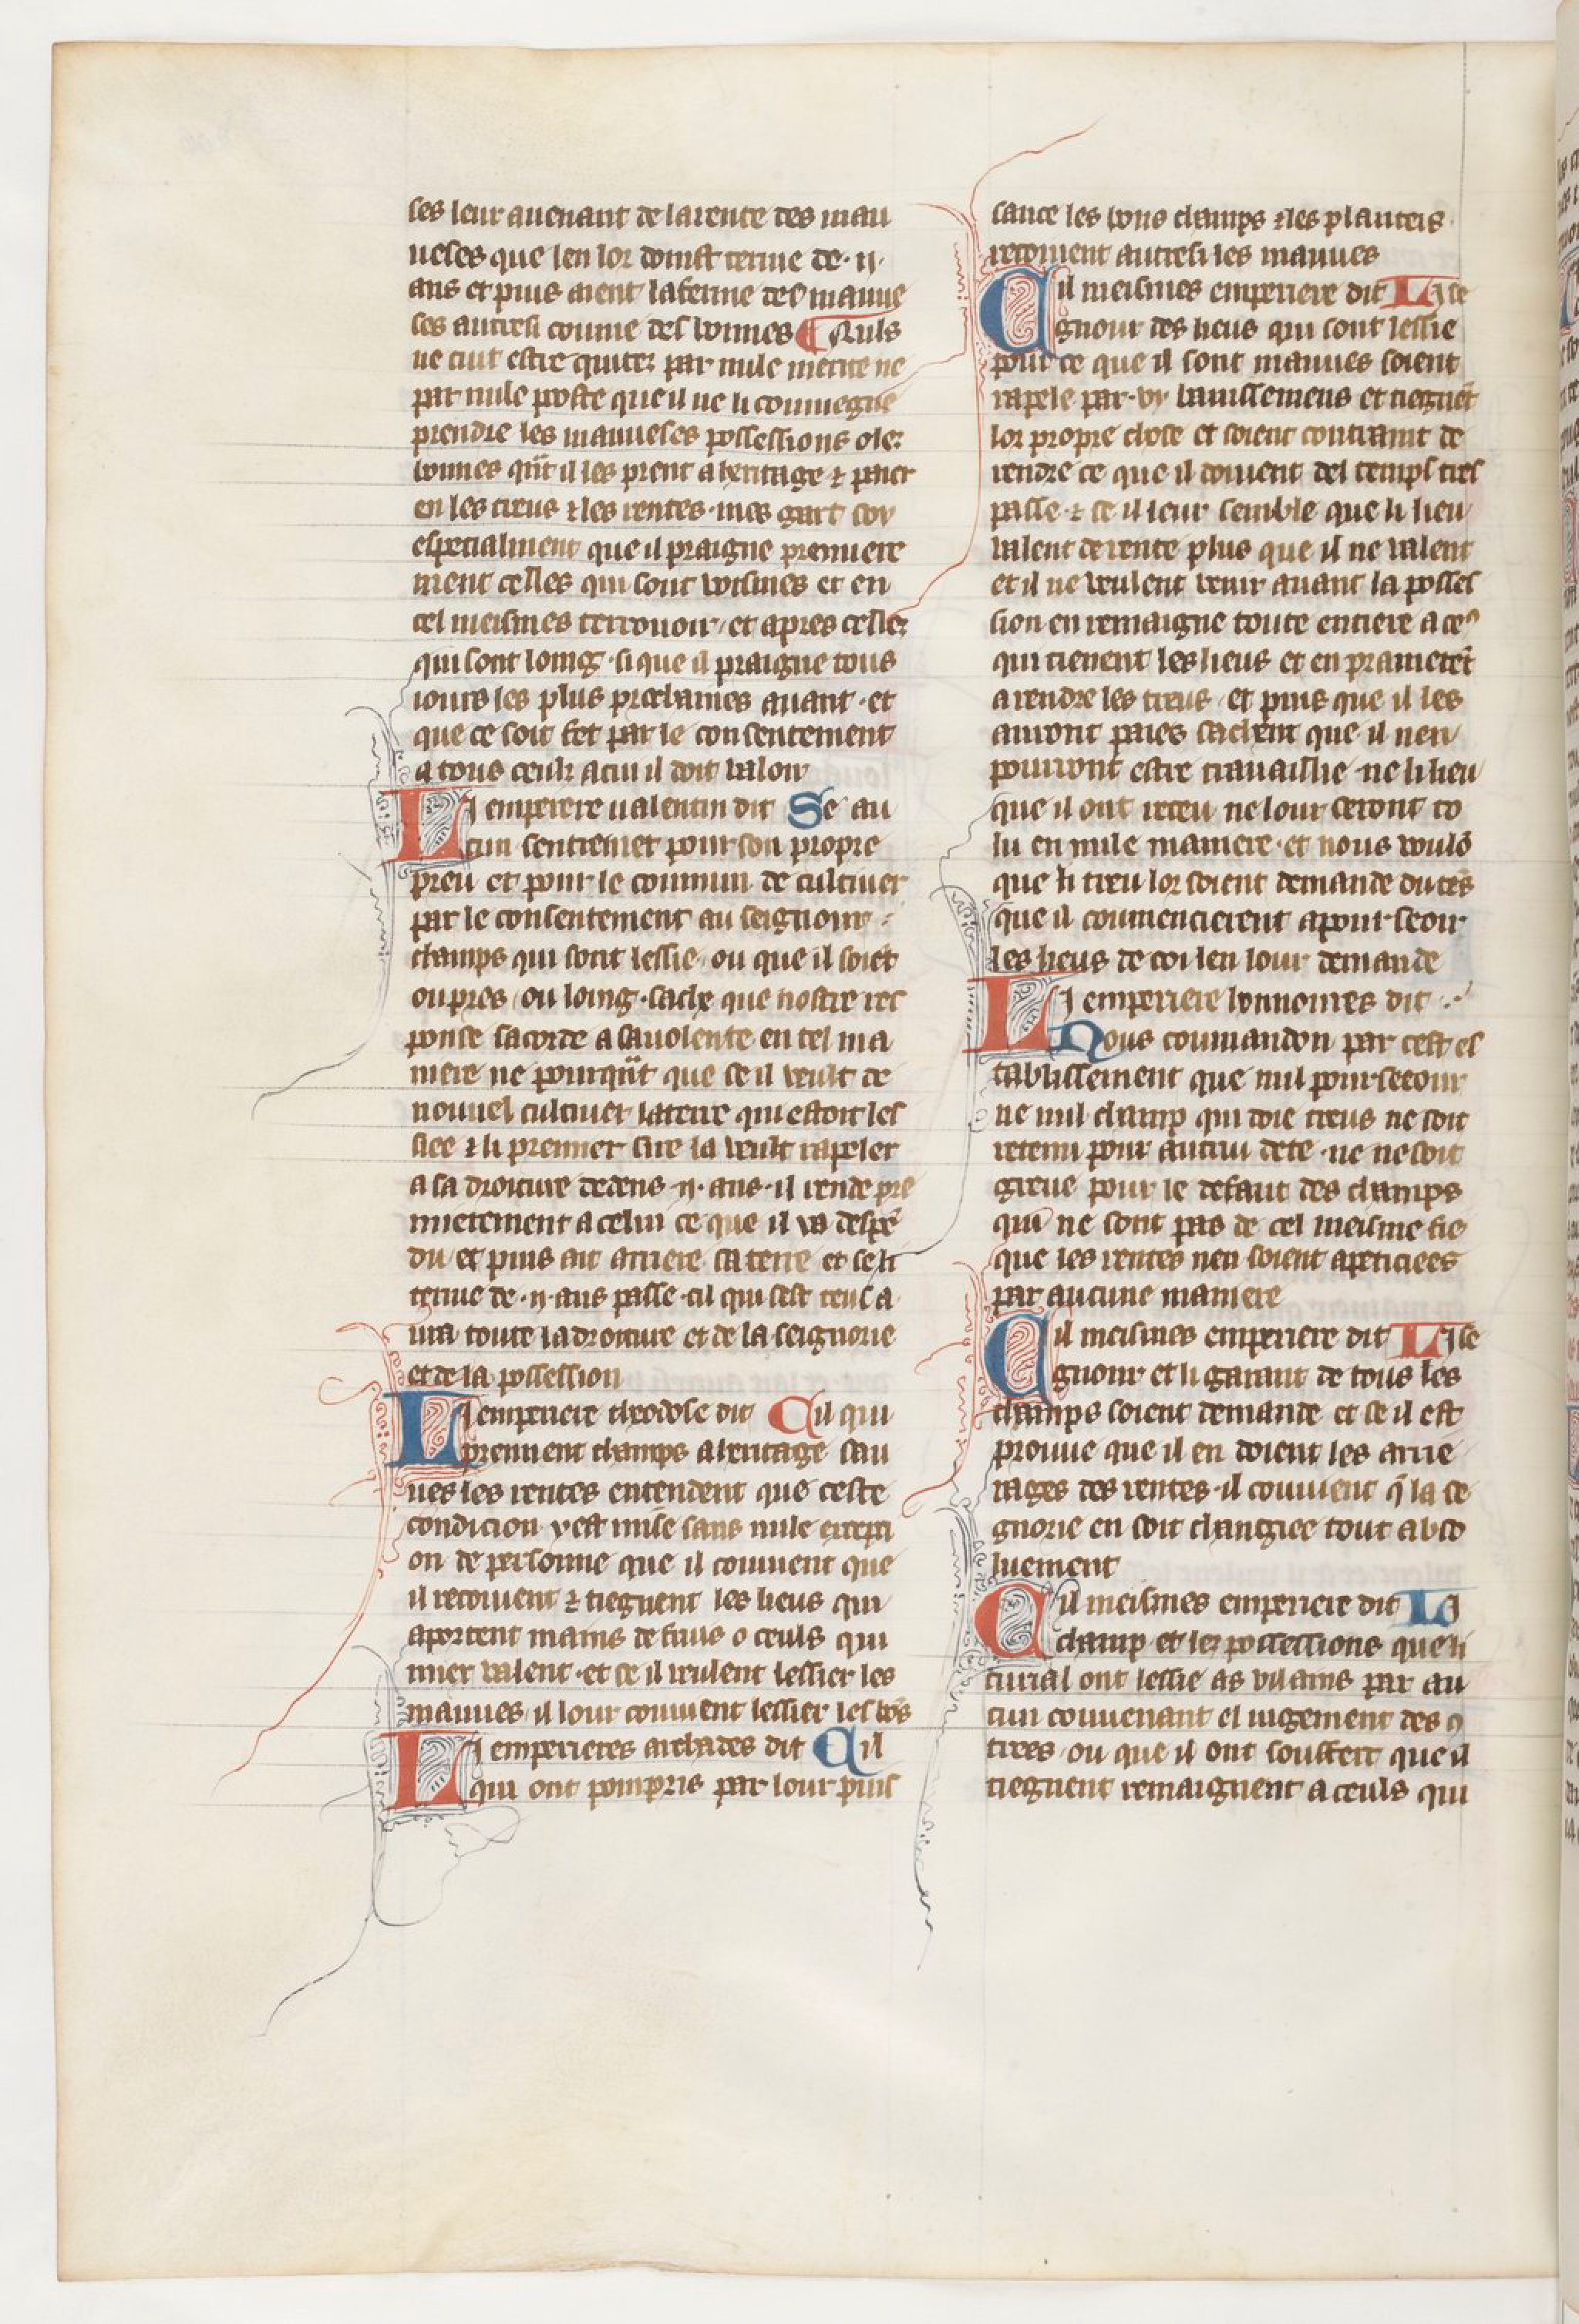 ses leur auenant de la rente des mau
ueses que len lor doinst terme de .ij.
ans et puis aient la ferme des mauue
ses autresi coume des bonnes ¶ Nuls
ne cuit estre quitez par nule merite ne
par nule poste que il ne li conuiegne
prendre les mauueses possessions o lez
bonnes qnt il les prent a heritage ⁊ paier
en les treus ⁊ les rentes . mes gart soy
especialment que il praigne premiere
ment celles qui sont voisines et en
cel meismes terrouoir . et apres cellez
qui sont loing . si que il praigne tous
iours les plus prochaines auant . et
que ce soit fet par le consentement
a tous ceulz a cui il doit valoir
Li emperere ualentin dit Se au
cun sentremet pour son propre
preu et pour le commun de cultiuer
par le consentement au seignour
champs qui sont lessie . ou que il soiet
ou pres . ou loing . sache que nostre res
ponse sacorde a sa uolente . en tel ma
niere ne pourqnt que se il veult de
nouuel cultiuer la terre qui estoit les
siee ⁊ li premier sire la veult rapeler
a sa droiture dedens .ij. ans . il rende pre
mierement a celui ce que il va despe
du . et puis ait arriere sa terre et se li
terme de .ij. ans passe . cil qui sest teus a
ura toute la droiture et de la seignorie
et de la possession
Li emperiere theodose dit Cil qui
prennent champs a heritage sau
ues les rentes entendent que ceste
condicion y est mise sans nule excepti
on de personne que il conuient que
il recoiuent ⁊ tieguent les lieus qui
aportent mains de fruis o ceuls qui
miez valent . et se il veulent lessier les
mauues . il lour conuient lessier les bos
Li emperieres archades dit Cil
qui ont pompris par lour puis
sance les bons champs ⁊ les planteis
recoiuent autresi les mauues
Cil meismes emperiere dit Li se
gnour des lieus qui sont lessie
pour ce que il sont mauues soient
rapele par .vj. banissemens et tieguet
lor propre chose et soient contraint de
rendre ce que il doiuent del temps tres
passe . ⁊ se il leur semble que li lieu
valent de rente plus que il ne valent
et il ne veulent venir auant la posses
sion en remaigne toute entiere a ces
qui tienent les lieus et en prametet
a rendre les treus . et puis que il les
auront paies sachent que il nen
pourront estre trauaillie . ne li lieu
que il ont receu ne lour seront to
lu en nule maniere . et nous voulo
que li treu lor soient demande du tes
que il coumencierent a pourseoir
les lieus de coi len lour demande
Li emperiere honnoires dit
Nous coumandon par cest es
tablissement que nul pourseeour
ne nul champ qui doie treus ne soit
retenu pour autrui dete . ne ne soit
greue pour le defaut des champs
qui ne sont pas de cel meisme fie
que les rentes nen soient apeticiees
par aucune maniere
Cil meismes emperiere dit Li se
gnour et li garant de tous les
champs soient demande et se il est
prouue que il en doient les arrie
rages des rentes . il conuient q la se
gnorie en soit changiee tout abso
luement
Cil meismes emperiere dit Li
champ et les possessions que li
curial ont lessie as vilains par au
cun conuenant el iugement des q
trees . ou que il ont souffert que il
tieguent remaignent a ceuls qui